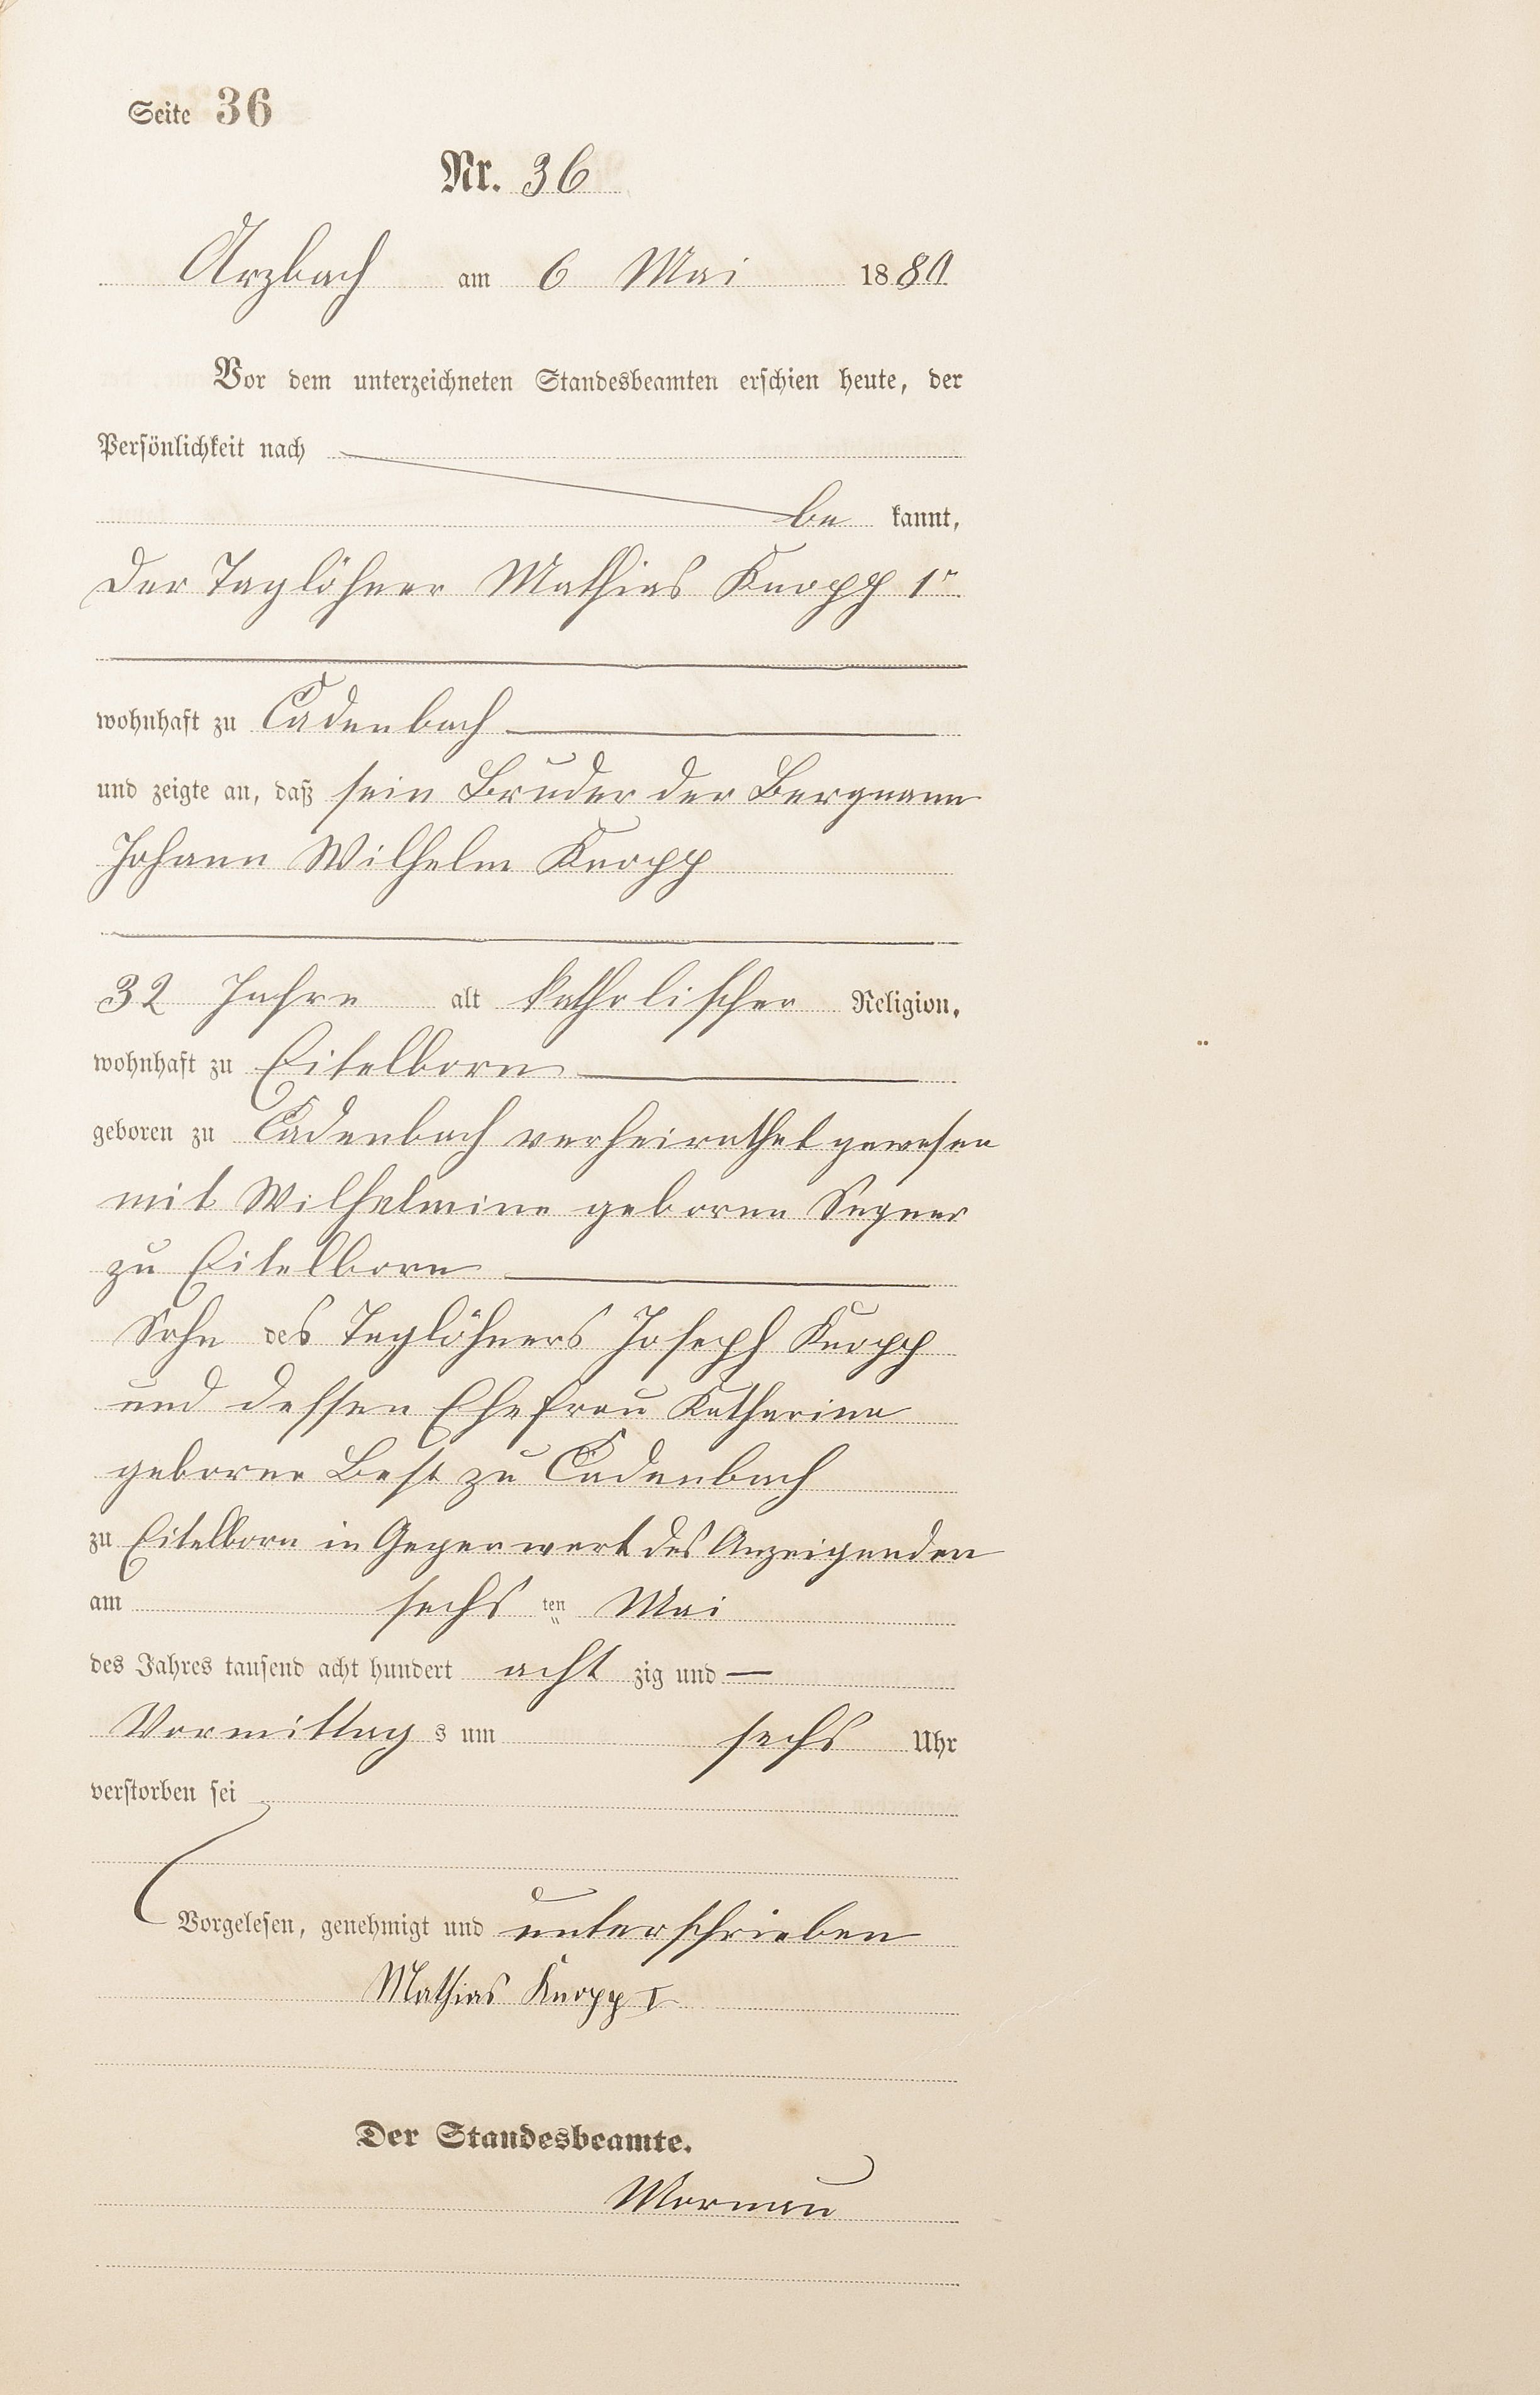 Seite 36
Nr. 36
Arzbach am 6 Mai 1880
Vor dem unterzeichneten Standesbeamten erschien heute, der
Persönlichkeit nach
be kannt,
Der Taglöhner Mathias Knopp 1r
wohnhaft zu Cadenbach
und zeigte an, daß sein Bruder der Bergmann
Johann Wilhelm Knopp
32 Jahre alt katholischer Religion,
wohnhaft zu Eitelborn
geboren zu Cadenbach verheirathet gewesen
mit Wilhelmine geborne
zu Eitelborn
Sohn des Taglöhners Joseph Knopp
und dessen Ehefrau Katharina
geborne Best zu Cadenbach
zu Eitelborn in Gegenwart des Anzeigenden
am sechs ten Mai
des Jahres tausend acht hundert acht zig und —
Vormittag s um sechs Uhr
verstorben sei
Vorgelesen, genehmigt und unterschrieben
Mathias Knopp I
Der Standesbeamte.